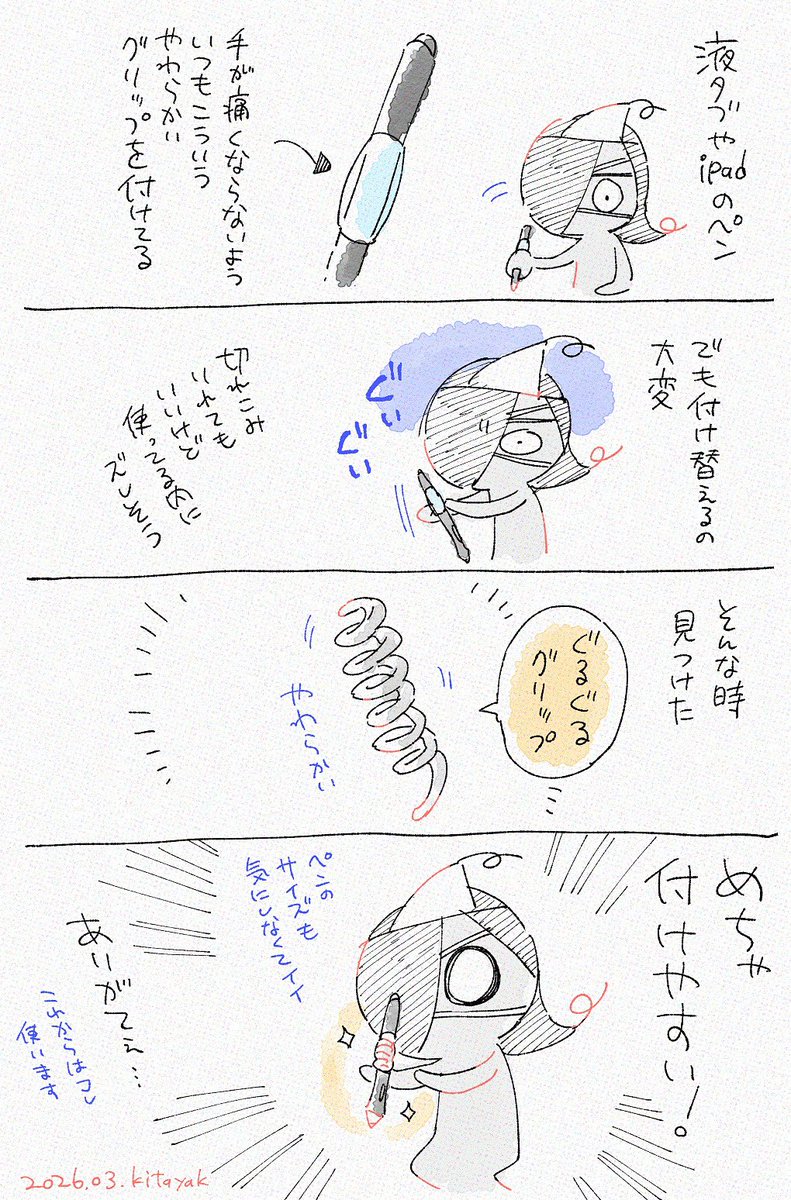 液タブやipadのペン
手が痛くならないよう
いつもこういう
やわらかい
グリップを付けてる
でも付け替えるの
大変
ぐい
ぐい
切れこみ
いれても
いいけど
使ってる内に
ズレそう
そんな時
見つけた
ぐるぐる
グリップ
やわらかい
めちゃ
付けやすい!。
ペンの
サイズも
気にしなくてイイ
ありがてぇ…
これからはコレ
使います
2026.03.kitayak